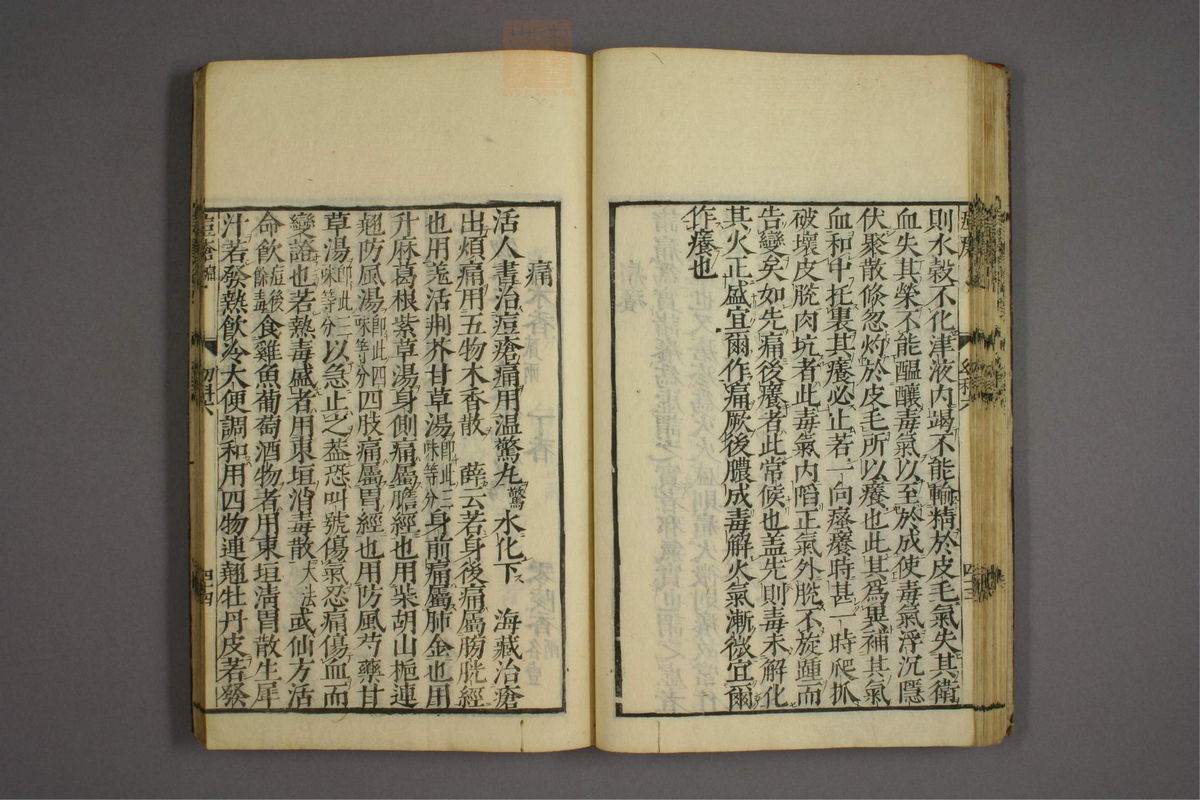 則水穀不化津液內竭不能輸精於皮毛氣失其衛
血失其榮不能醞釀毒氣以至於成使毒氣浮沉隱
伏聚散倏忽灼於皮毛所以癢也此其爲異補其氣
血和中托裏其癢必止若一向瘙癢時甚一時爬抓
破壞皮脫肉坑者此毒氣內陷正氣外脫不旋踵而
告變矣如先痛後癢者此常候也盖先則毒未解化
其火正盛宜爾作痛厥後膿成毒解火氣漸微宜爾
作癢也
痛
活人書治痘瘡痛用溫驚丸驚水化下 海藏治瘡
出煩痛用五物木香散 薛云若身後痛屬膀胱經
也用羗活荆芥甘草湯即此三味等分身前痛屬肺金也用
升麻葛根紫草湯身側痛屬膽經也用柴胡山梔連
翹防風湯即此四味等分四肢痛屬胃經也用防風芍藥甘
草湯即此三味等分以急止之盖恐叫號傷氣忍痛傷血而
變證也若熱毒盛者用東垣消毒散大法或仙方活
命飲痘後餘毒食雞魚葡萄酒物者用東垣清胃散生犀
汁若發熱飲冷大便調和用四物連翹牡丹皮若發
四十四